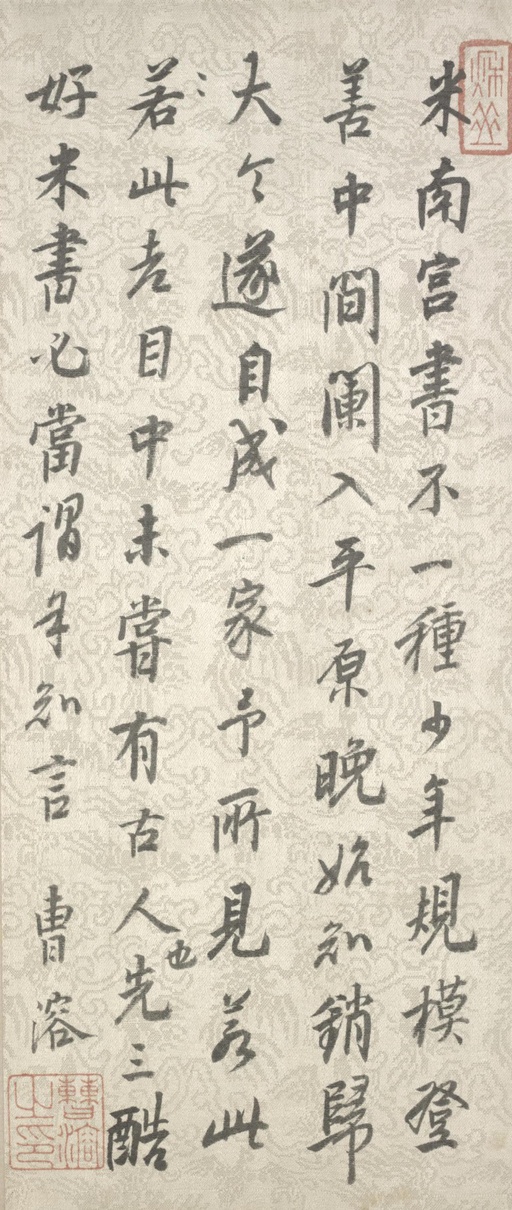 米南宮書不一種少年規模登
善中間闌入平原晚始知銷歸
大令遂自成一家予所見若此
若此老目中未嘗有古人也先三酷
好米書必當謂予知言 曹溶
曹溶之印